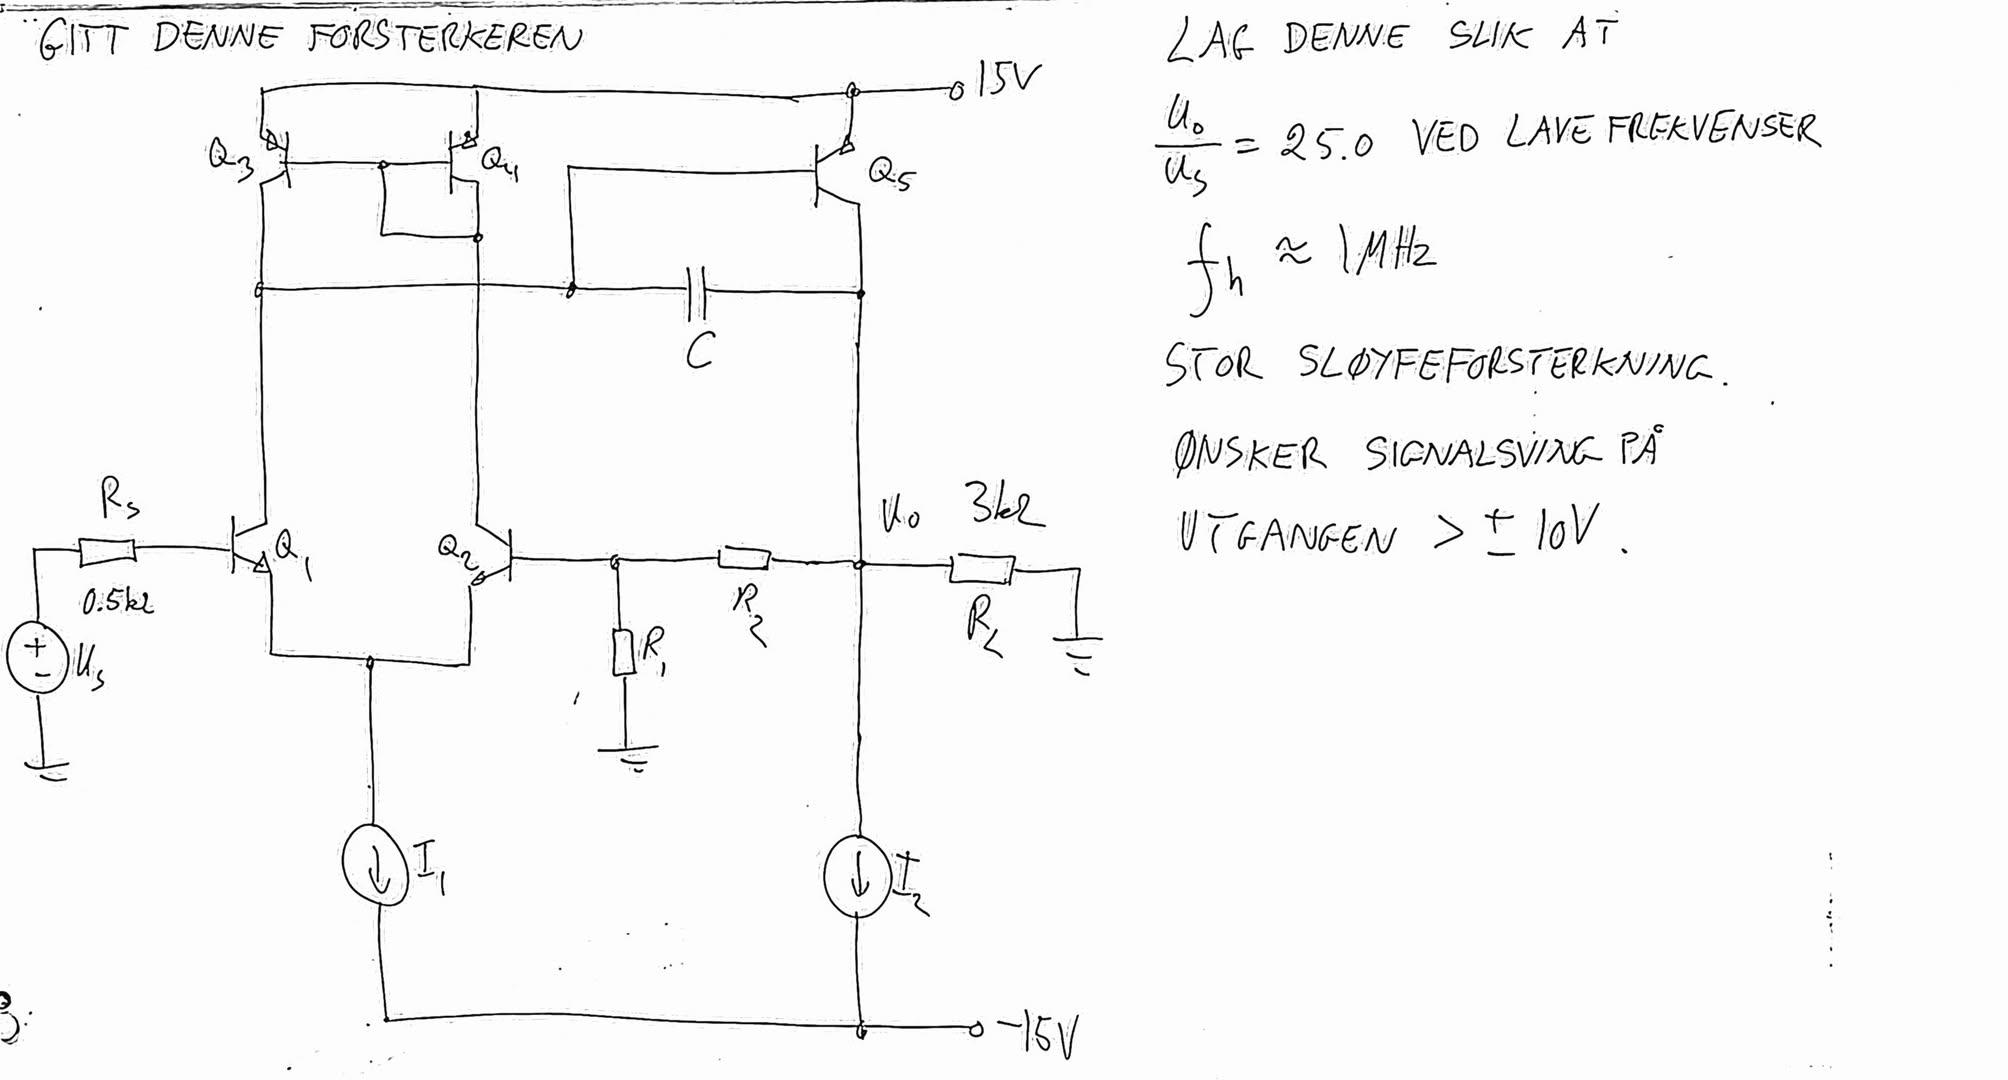 GITT DENNE FORSTERKEREN
15V
Q3
Q4
Q5
C
Rs
0.5kΩ
Us
Q1
Q2
R2
R1
Uo
3kΩ
RL
I1
I2
-15V
LAG DENNE SLIK AT
Uo
Us
= 25.0 VED LAVE FREKVENSER
fh ≈ 1MHz
STOR SLØYFEFORSTERKNING.
ØNSKER SIGNALSVING PÅ
UTGANGEN > ± 10V.